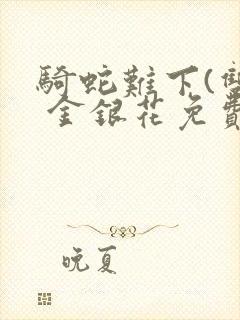 騎蛇難下(雙
金銀花免費
晚夏